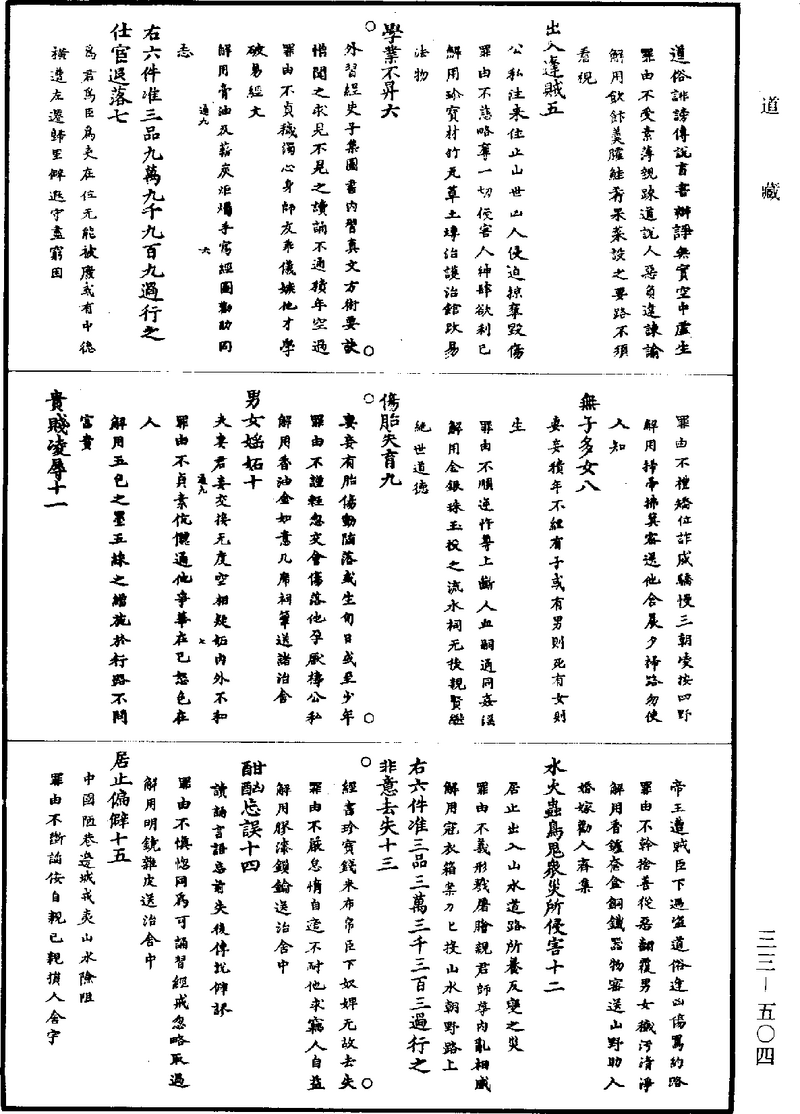 道藏
三三—五〇四
道俗誹謗傳說首害辯諍無實空中虛生
罪由不受素薄親疎道說人惡負違諫諭
解用飲飰羹臛鮭肴果菜設之要路不須
看視
出入逢賊五
公私往來住止山世凶人侵迫掠奪毀傷
罪由不慈略奪一切侵害人神肆欲利已
解用珍寶材竹瓦草土塼治護治館改易
法物
學業不昇六
外習經史子集圖書內習真文方術要訣
悟聞之求見不見之讀誦不通積年空過
罪由不貞穢濁心身師友乖儀嫉他才學
破易經文
解用膏油及薪炭炬燭手寫經圖勸助同
志
右六件准三品九萬九千九百九過行之
仕官退落七
為君為臣為夫在位无能被廢或有中德
橫遭左遷歸里僻遊守盡窮困
罪由不禮矯位詐威驕慢三朝凌按四野
解用掃帚拂箕密送他舍晨夕掃路勿使
人知
無子多女八
妻妾積年不經有子或有男則死有女則
生
罪由不順逆作尊上斷人血嗣通同姦謀
解用金銀珠玉投之流水祠无後親賢繼
絕世道德
傷胎失育九
妻妾有胎傷動陷落或生旬日或至少年
罪由不謹輕忽交會傷落他孕厭禱公私
解用香油金如意几席祠筆送諸治舍
男女婬妬十
夫妻君妾交接无度空相疑妬內外不和
罪由不貞素伉儷通他爭華在已怒色在
人
解用五色之墨五綵之繒施於行路不問
富貴
貴賤凌辱十一
帝王遭賊臣下遇盜道俗逢凶傷罵約略
罪由不幹捨善從惡翻覆男女穢污清淨
解用香鑪奩金銅鐵器物密送山野助人
婚嫁勸人齋集
水火蟲鳥鬼衆災所侵害十二
居止出入山水道路所養反變之災
罪由不義形戮屠膾親君師尊內亂相滅
解用冠衣箱案刀匕投山水朝野路上
右六件准三品三萬三千三百三過行之
非意去失十三
經書珍寶錢米布帛臣下奴婢无故去失
罪由不嚴怠惰自逸不耐他求竊人自益
解用膠漆鎖鑰送治舍中
酣醟忘誤十四
讀誦言語忘前失後傳說僻謬
罪由不慎惚同為可誦習經戒忽略取過
解用明鏡雜皮送治舍中
居止偏僻十五
中國陋巷邊城戎夷山水險阻
罪由不斷諂佞自親已親損人舍宇